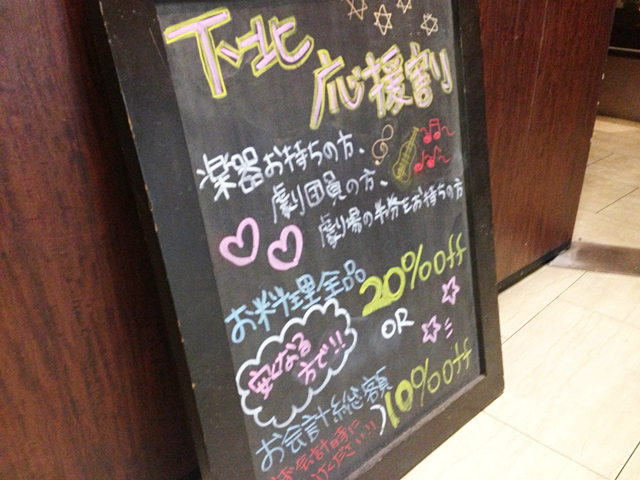 下北
応援割
楽器お持ちの方、
劇団員の方、
劇場の半券をお持ちの方
お料理全品 20%off
OR
安くなる
方で!!
お会計総額 10%off
お会計時に
ください!!